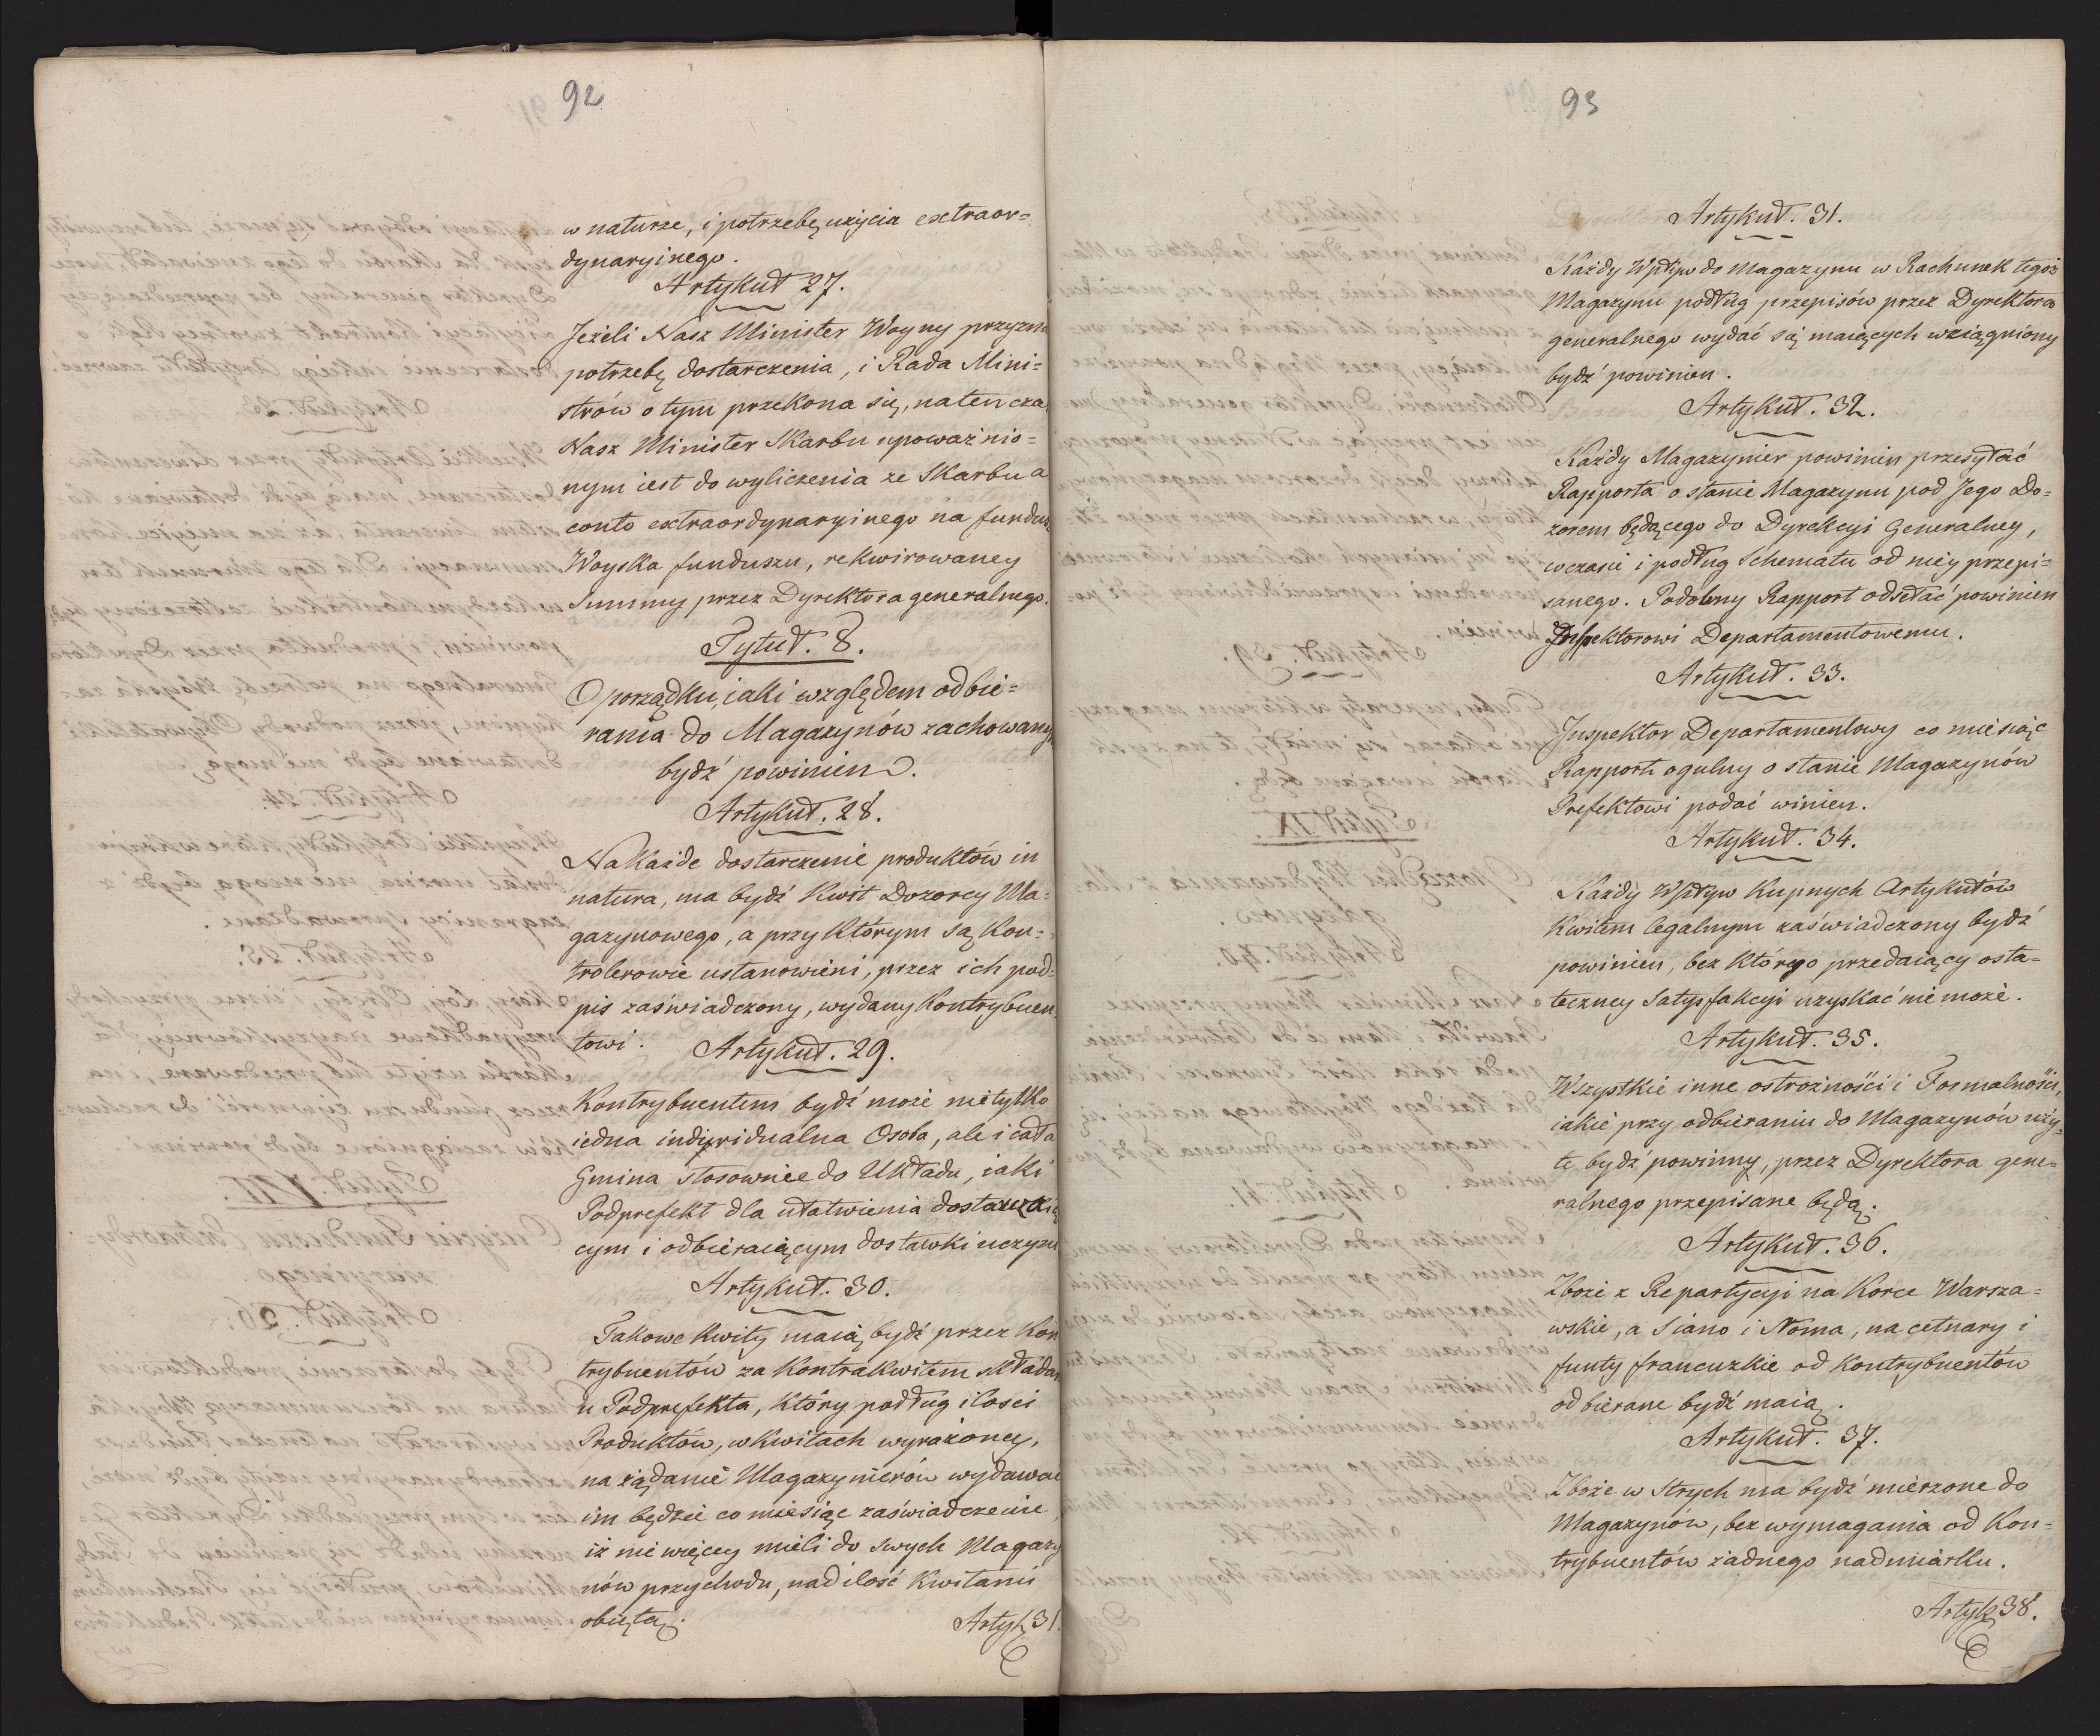 92
w naturze, i potrzebę użycia extraor=
dynaryinego.
Artykuł 27.
Jeżeli Nasz Minister Woyny przyzna
potrzebę dostarczenia, i Rada Mini=
strów o tym przekona się, natencza
Nasz Minister Skarbu upoważnio=
nym iest do wyliczenia ze Skarbu a
conto extraordynaryinego na fundusz
Woyska funduszu, rekwirowaney
Summy przez Dyrektora generalnego.
Tytuł. 8.
O porządku, iaki względem odbie=
rania do Magazynów zachowany
bydź powinien.
Artykuł. 28.
Na Każde dostarczenie produktów in
natura, ma bydź Kwit Dozorcy Ma=
gazynowego, a przy Którym są Kon=
trolerowie ustanowieni, przez ich pod=
pis zaświadczony, wydany Kontrybuen
towi.
Artykuł. 29.
Kontrybuentem bydź może nietylko
iedna indiwidualna Osoba, ale i cała
Gmina stosownie do Układu, iaki
Podprefekt dla ułatwienia dostawia
cym i odbieraiącym dostawki uczyni
Artykuł. 30.
Takowe Kwity maią bydź przez Kon
trybuentów za Kontrakwitem składan
u Podprefekta, Który podług ilosci
Produktów, w Kwitach wyrażoney,
na żądanie Magazynierów wydawać
im będzie co miesiąc zaświadczenie,
iż nie więcey mieli do swych Magazy
nów przychodu, nad ilość Kwitami
obiętą.
Artyk 31.
93
Artykuł. 31.
Każdy Wpływ do Magazynu w Rachunek tegoż
Magazynu podług przepisów przez Dyrektora
generalnego wydać się maiących wciągniony
bydź powinien.
Artykuł. 32.
Każdy Magazynier powinien przesyłać
Rapporta o stanie Magazynu pod Jego Do=
zorem będącego do Dyrekcyi Generalney,
w czasie i podług Schematu od niey przepi=
sanego. Podobny Rapport odsełać powinien
Inspektorowi Departamentowemu.
Artykuł. 33.
Inspektor Departamentowy co miesiąc
Rapport ogulny o stanie Magazynów
Prefektowi podać winien.
Artykuł. 34.
Każdy Wpływ Kupnych Artykułów
Kwitem legalnym zaświadczony bydź
powinien, bez Którego przedaiący osta=
teczney Satysfakcyi uzyskać nie może.
Artykuł. 35.
Wszystkie inne ostrożności i Formalności,
iakie przy odbieraniu do Magazynów uży=
te bydź powinny, przez Dyrektora gene=
ralnego przepisane będą.
Artykuł. 36.
Zboże z Repartycyi na Korce Warsza=
wskie, a Siano i Słoma, na cetnary i
funty francuzkie od Kontrybuentów
odbierane bydź maią.
Artykuł. 37.
Zboże w Strych ma bydź mierzone do
Magazynów, bez wymagania od Kon=
trybuentów żadnego nadmiarku.
Artyk 38.